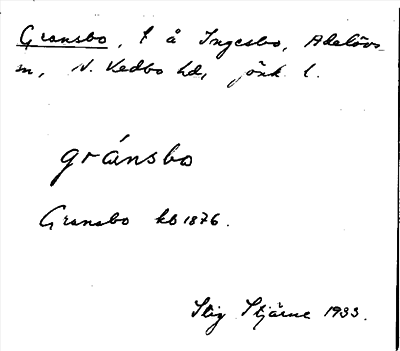 Gransbo, t å Ingesbo, Adelövs
sn, N. Vedbo hd, jönk l.
gránsbo
Gransbo kb 1876.
Stig Stjärne 1933.